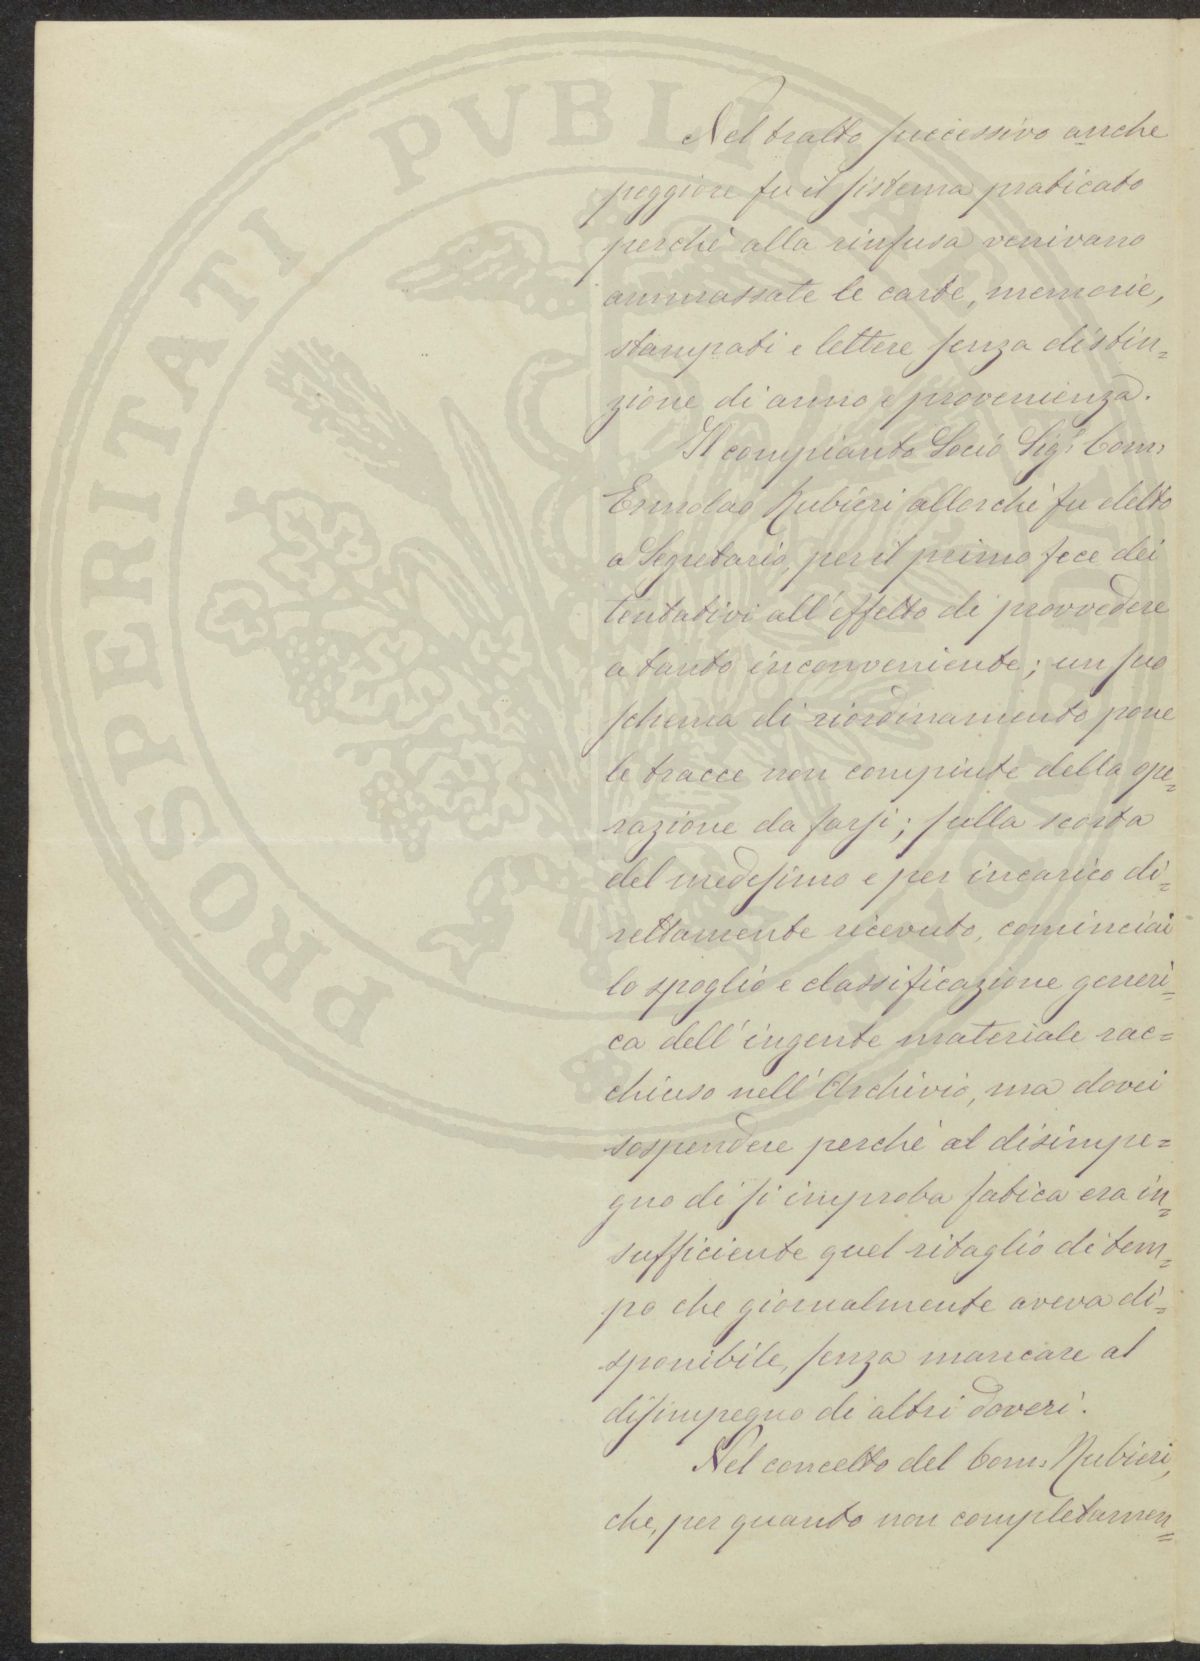 PROSPERITATI PVBLICAE
Nel tratto successivo anche
peggiore fu il sistema praticato
perchè alla rinfusa venivano
ammassate le carte, memorie,
stampati e lettere senza distin=
zione di anno e provenienza.
Il compianto Socio Sigr. Com:
Ermolao Rubieri allorchè fu eletto
a Segretario, per il primo fece dei
tentativi all'effetto di provvedere
a tanto inconveniente; un suo
schema di riordinamento pone
le tracce non compiute della ope=
razione da farsi; sulla scorta
del medesimo e per incarico di=
rettamente ricevuto, cominciai
lo spoglio e classificazione generi=
ca dell'ingente materiale rac=
chiuso nell'Archivio, ma dovei
sospendere perchè al disimpe=
gno di sì improba fatica era in=
sufficiente quel ritaglio di tem=
po che giornalmente aveva di=
sponibile, senza mancare al
disimpegno di altri doveri.
Nel concetto del Com: Rubieri,
che, per quanto non completamen=